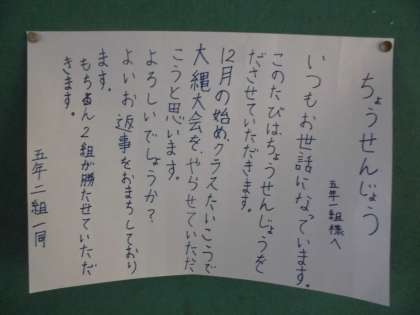 ちょうせんじょう
五年一組様へ
いつもお世話になっています。
このたびは、ちょうせんじょうを
ださせていただきます。
12月の始め、クラスたいこうで
大縄大会を、やらせていただ
こうと思います。
よろしいでしょうか？
よいお返事をおまちしており
ます。
もちろん2組が勝たせていただ
きます。
五年二組一同